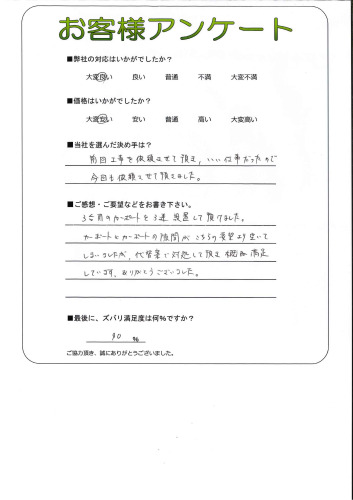 お客様アンケート
■弊社の対応はいかがでしたか？
大変良い　良い　普通　不満　大変不満
■価格はいかがでしたか？
大変安い　安い　普通　高い　大変高い
■当社を選んだ決め手は？
前回工事を依頼させて頂き、いい仕事だったので
今回も依頼させて頂きました。
■ご感想・ご要望などをお書き下さい。
3台用のカーポートを3連設置して頂けました。
カーポートとカーポートの隙間がこちらの要望より空いて
しまいましたが、代替案で対処して頂き 満足
しています。ありがとうございました。
■最後に、ズバリ満足度は何%ですか？
90 %
ご協力頂き、誠にありがとうございました。